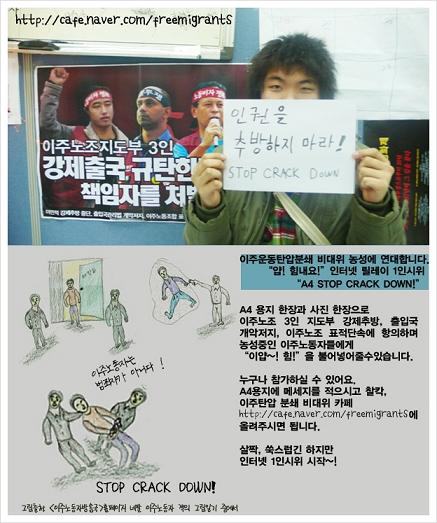 http://cafe.naver.com/freemigrants
이주노조지도부 3인
강제출국 규탄한
책임자를 처벌
인권을
추방하지 마라!
STOP CRACK DOWN
이주노동자는
범죄자가 아니다!
STOP CRACK DOWN!
이주운동탄압분쇄 비대위 농성에 연대합니다.
"얍! 힘내요!" 인터넷 릴레이 1인시위
"A4 STOP CRACK DOWN!"
A4 용지 한장과 사진 한장으로
이주노조 3인 지도부 강제추방, 출입국
개악저지, 이주노조 표적단속에 항의하며
농성중인 이주노동자들에게
"이얍~! 힘!"을 불어넣어줄수있습니다.
누구나 참가하실 수 있어요.
A4용지에 메세지를 적으시고 찰칵,
이주탄압 분쇄 비대위 카페
http://cafe.naver.com/freemigrants에
올려주시면 됩니다.
살짝, 쑥스럽긴 하지만
인터넷 1인시위 시작~!